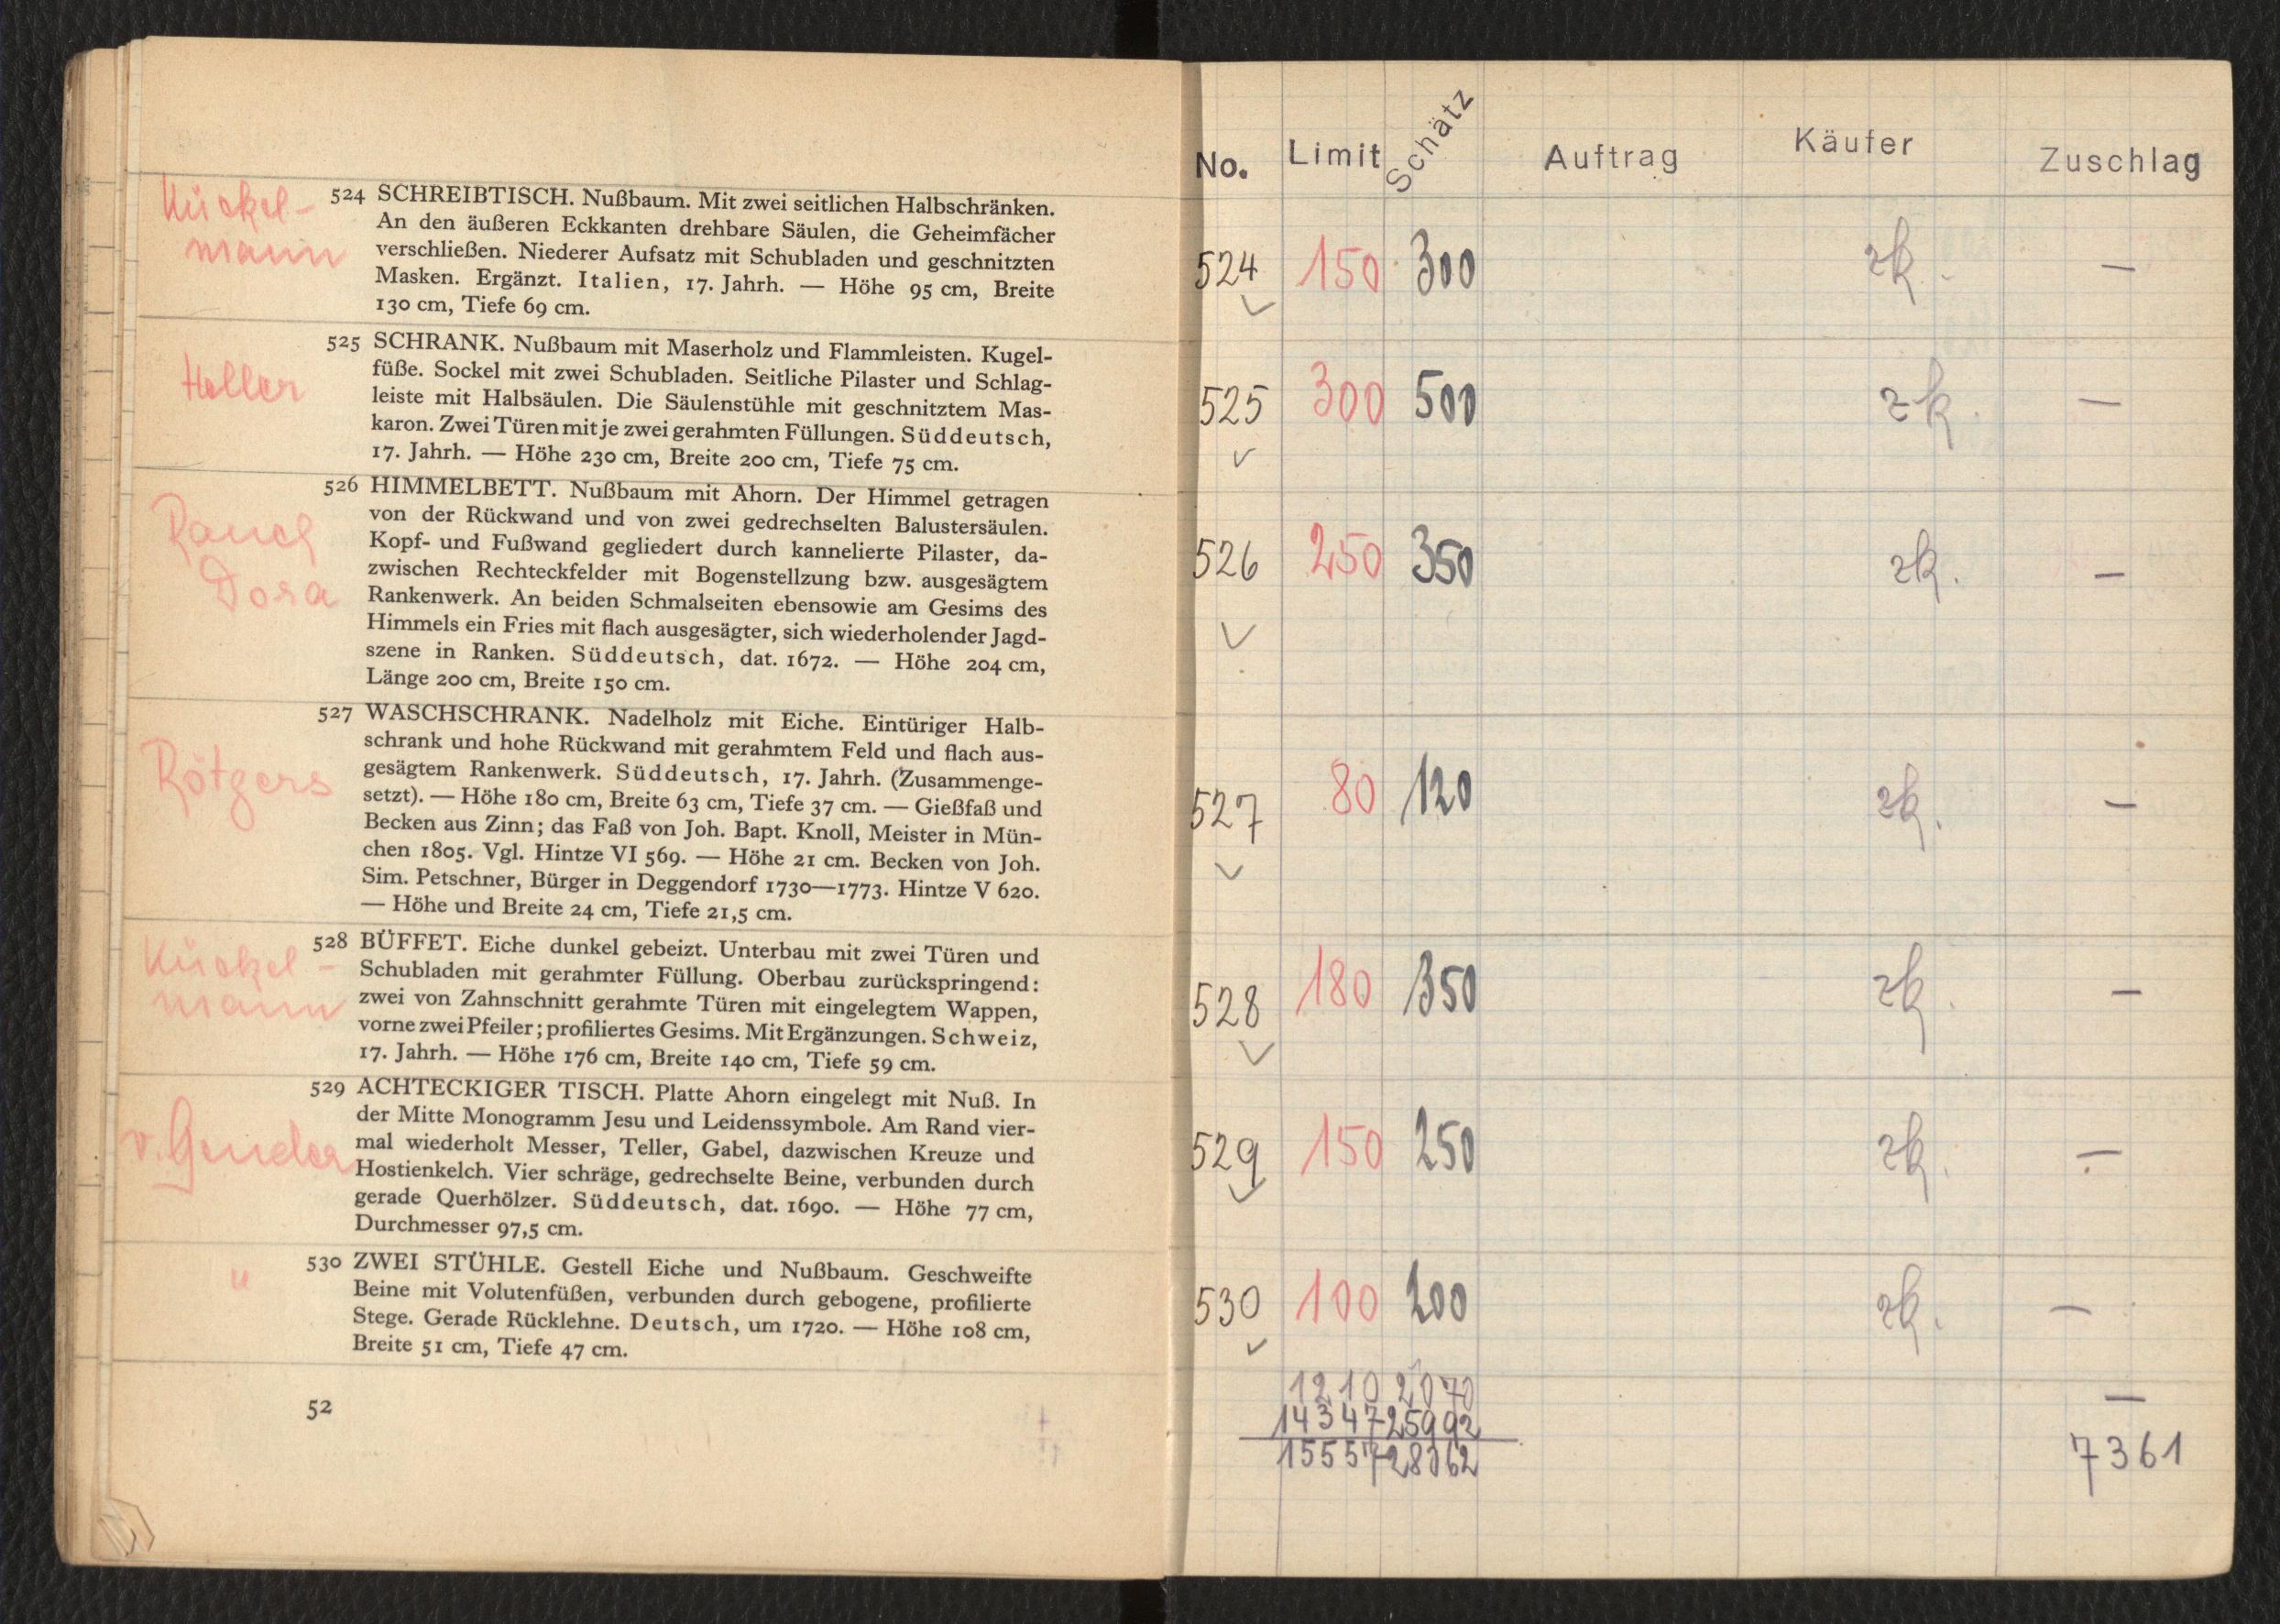 Kückel-
mann
524 SCHREIBTISCH. Nußbaum. Mit zwei seitlichen Halbschränken.
An den äußeren Eckkanten drehbare Säulen, die Geheimfächer
verschließen. Niederer Aufsatz mit Schubladen und geschnitzten
Masken. Ergänzt. Italien, 17. Jahrh. — Höhe 95 cm, Breite
130 cm, Tiefe 69 cm.
Holler
525 SCHRANK. Nußbaum mit Maserholz und Flammleisten. Kugel-
füße. Sockel mit zwei Schubladen. Seitliche Pilaster und Schlag-
leiste mit Halbsäulen. Die Säulenstühle mit geschnitztem Mas-
karon. Zwei Türen mit je zwei gerahmten Füllungen. Süddeutsch,
17. Jahrh. — Höhe 230 cm, Breite 200 cm, Tiefe 75 cm.
Rauch
Dora
526 HIMMELBETT. Nußbaum mit Ahorn. Der Himmel getragen
von der Rückwand und von zwei gedrechselten Balustersäulen.
Kopf- und Fußwand gegliedert durch kannelierte Pilaster, da-
zwischen Rechteckfelder mit Bogenstellzung bzw. ausgesägtem
Rankenwerk. An beiden Schmalseiten ebensowie am Gesims des
Himmels ein Fries mit flach ausgesägter, sich wiederholender Jagd-
szene in Ranken. Süddeutsch, dat. 1672. — Höhe 204 cm,
Länge 200 cm, Breite 150 cm.
Rötgers
527 WASCHSCHRANK. Nadelholz mit Eiche. Eintüriger Halb-
schrank und hohe Rückwand mit gerahmtem Feld und flach aus-
gesägtem Rankenwerk. Süddeutsch, 17. Jahrh. (Zusammenge-
setzt). — Höhe 180 cm, Breite 63 cm, Tiefe 37 cm. — Gießfaß und
Becken aus Zinn; das Faß von Joh. Bapt. Knoll, Meister in Mün-
chen 1805. Vgl. Hintze VI 569. — Höhe 21 cm. Becken von Joh.
Sim. Petschner, Bürger in Deggendorf 1730—1773. Hintze V 620.
— Höhe und Breite 24 cm, Tiefe 21,5 cm.
Kückel-
mann
528 BÜFFET. Eiche dunkel gebeizt. Unterbau mit zwei Türen und
Schubladen mit gerahmter Füllung. Oberbau zurückspringend:
zwei von Zahnschnitt gerahmte Türen mit eingelegtem Wappen,
vorne zwei Pfeiler; profiliertes Gesims. Mit Ergänzungen. Schweiz,
17. Jahrh. — Höhe 176 cm, Breite 140 cm, Tiefe 59 cm.
529 ACHTECKIGER TISCH. Platte Ahorn eingelegt mit Nuß. In
der Mitte Monogramm Jesu und Leidenssymbole. Am Rand vier-
mal wiederholt Messer, Teller, Gabel, dazwischen Kreuze und
Hostienkelch. Vier schräge, gedrechselte Beine, verbunden durch
gerade Querhölzer. Süddeutsch, dat. 1690. — Höhe 77 cm,
Durchmesser 97,5 cm.
"
530 ZWEI STÜHLE. Gestell Eiche und Nußbaum. Geschweifte
Beine mit Volutenfüßen, verbunden durch gebogene, profilierte
Stege. Gerade Rücklehne. Deutsch, um 1720. — Höhe 108 cm,
Breite 51 cm, Tiefe 47 cm.
52
No. Limit Schätz Auftrag Käufer Zuschlag
524 150 300 zk. —
525 300 500 zk. —
526 250 350 zk. —
527 80 120 zk. —
528 180 350 zk. —
529 150 250 zk. —
530 100 200 zk. —
1210 2070 —
14347 25992
15557 28062 7361